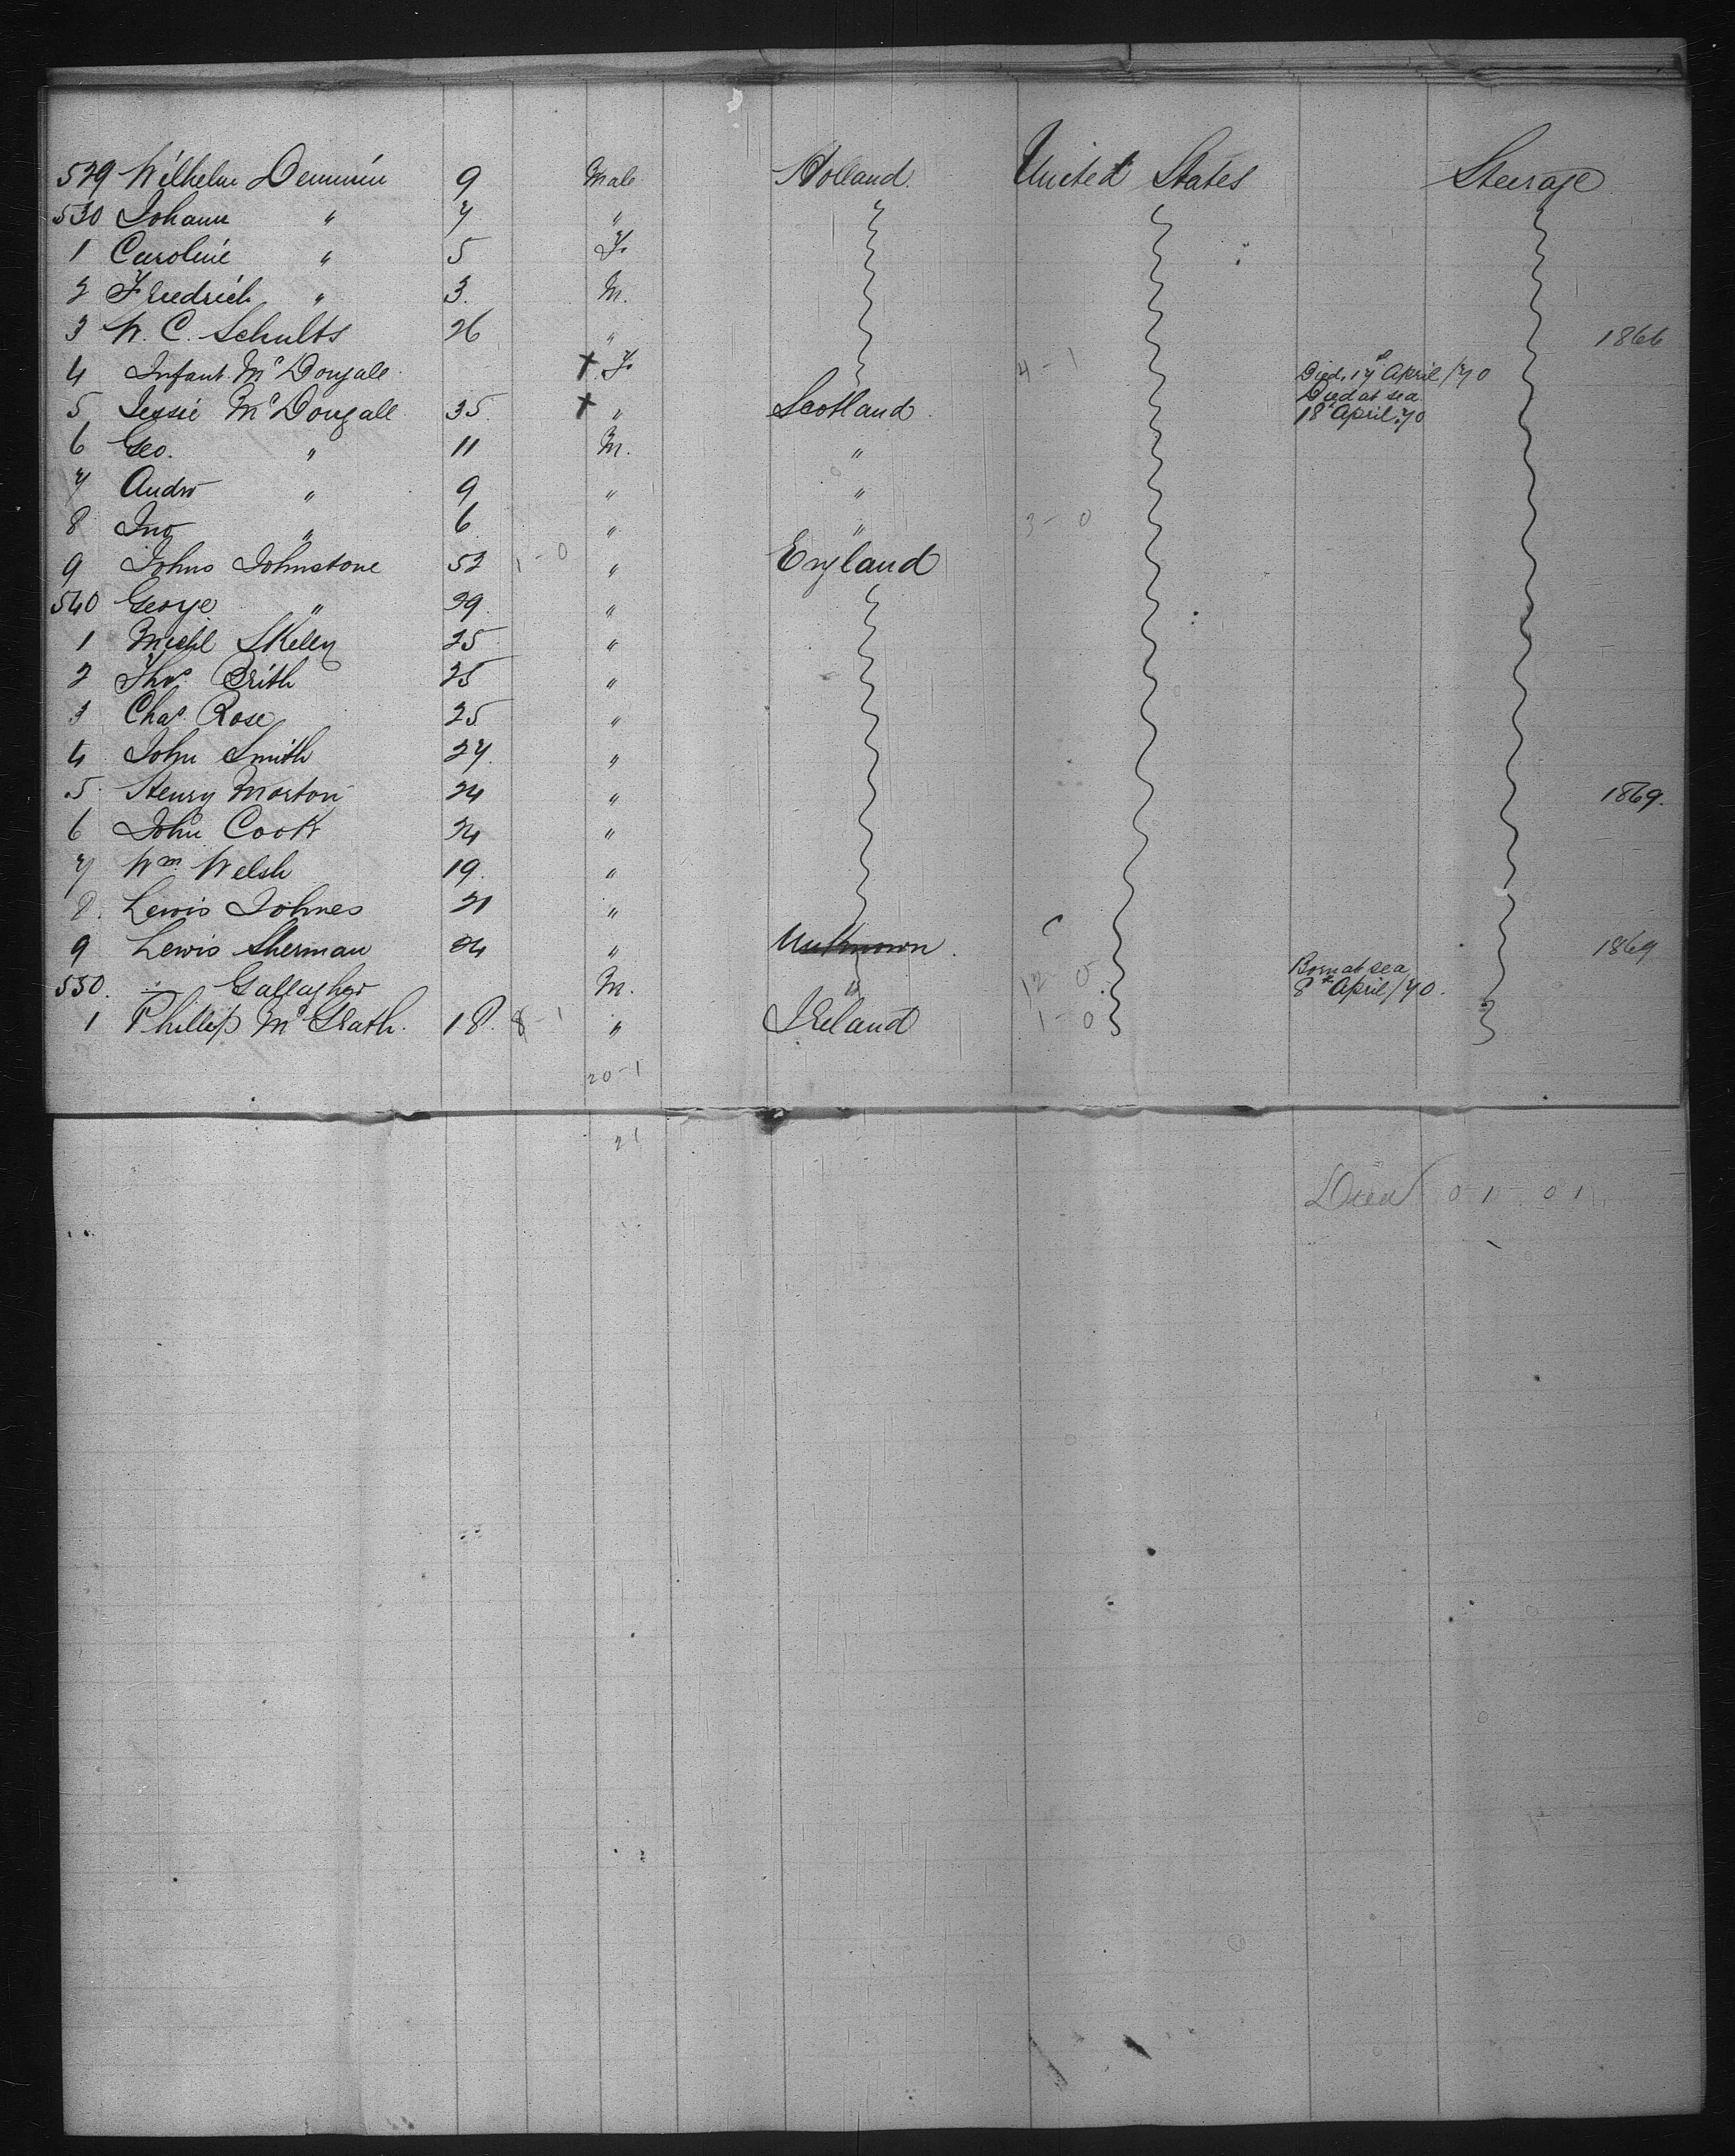 529 Wilhelm Demmin 9 Male Holland. United States Steerage
530 Johann " 7 "
1 Caroline " 5 F.
2 Friedrich " 3. M.
3 W. C. Schults 26 " 1866
4 Infant McDougall + F. 4 - 1 Died 17 April/70
5 Jessie McDougall 35 + " Scotland. Died at sea 18 April 70
6 Geo. " 11 M. "
7 Andw " 9 " "
8 Jno " 6 " " 3 - 0
9 Johns Johnstone 52 1 - 0 " England
540 George " 29 "
1 Michl Skelly 25 "
2 Thos. Brith 25 "
3 Chas. Rose 25 "
4 John Smith 27. "
5. Henry Morton 24 " 1869.
6 John Cook 24 "
7 Wm Welsh 19. "
8. Lewis Johnes 21 "
9 Lewis Sherman 24 " Unknown. 1869
550. — Gallagher M. " 12 - 0 Born at sea 8th April/70.
1 Phillip McGrath. 18. 8 - 1 " Ireland 1 - 0
20 - 1
21
Died 0 - 1 - 0 1